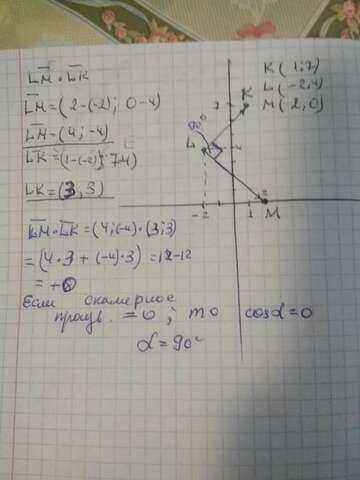 LM · LK
LM = (2-(-2); 0-4)
LM = (4; -4)
LK = (1-(-2); 7-4)
LK = (3, 3)
LM · LK = (4; (-4)) · (3; 3)
= (4 · 3 + (-4) · 3) = 12-12
= 0
Если скалярное
произв. = 0; то cosα = 0
α = 90°
K (1; 7)
L (-2; 4)
M (2, 0)
K
L
90°
-2
1
M